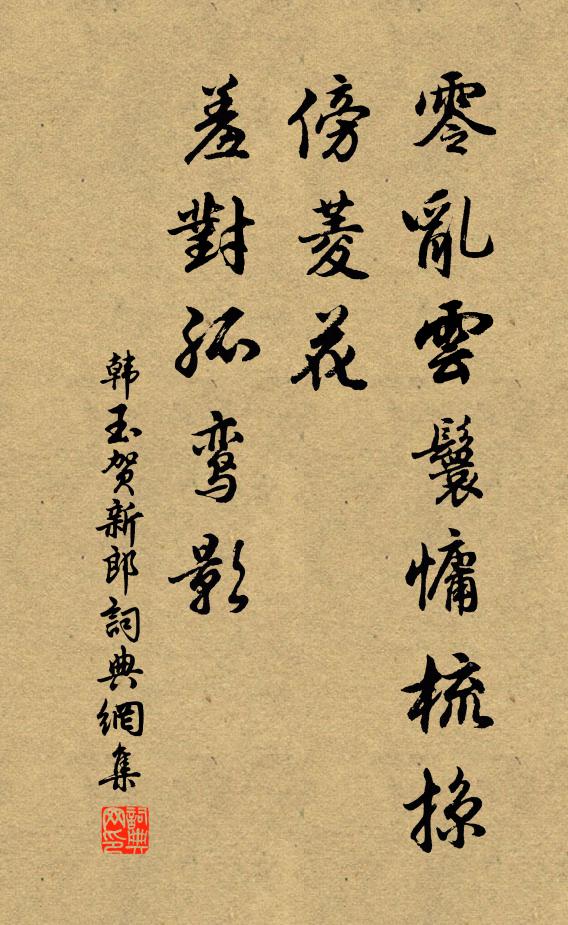 零亂雲鬟慵梳掠
傍菱花
羞對孤鸾影
韩玉贺新郎詞典網集
詞典网印